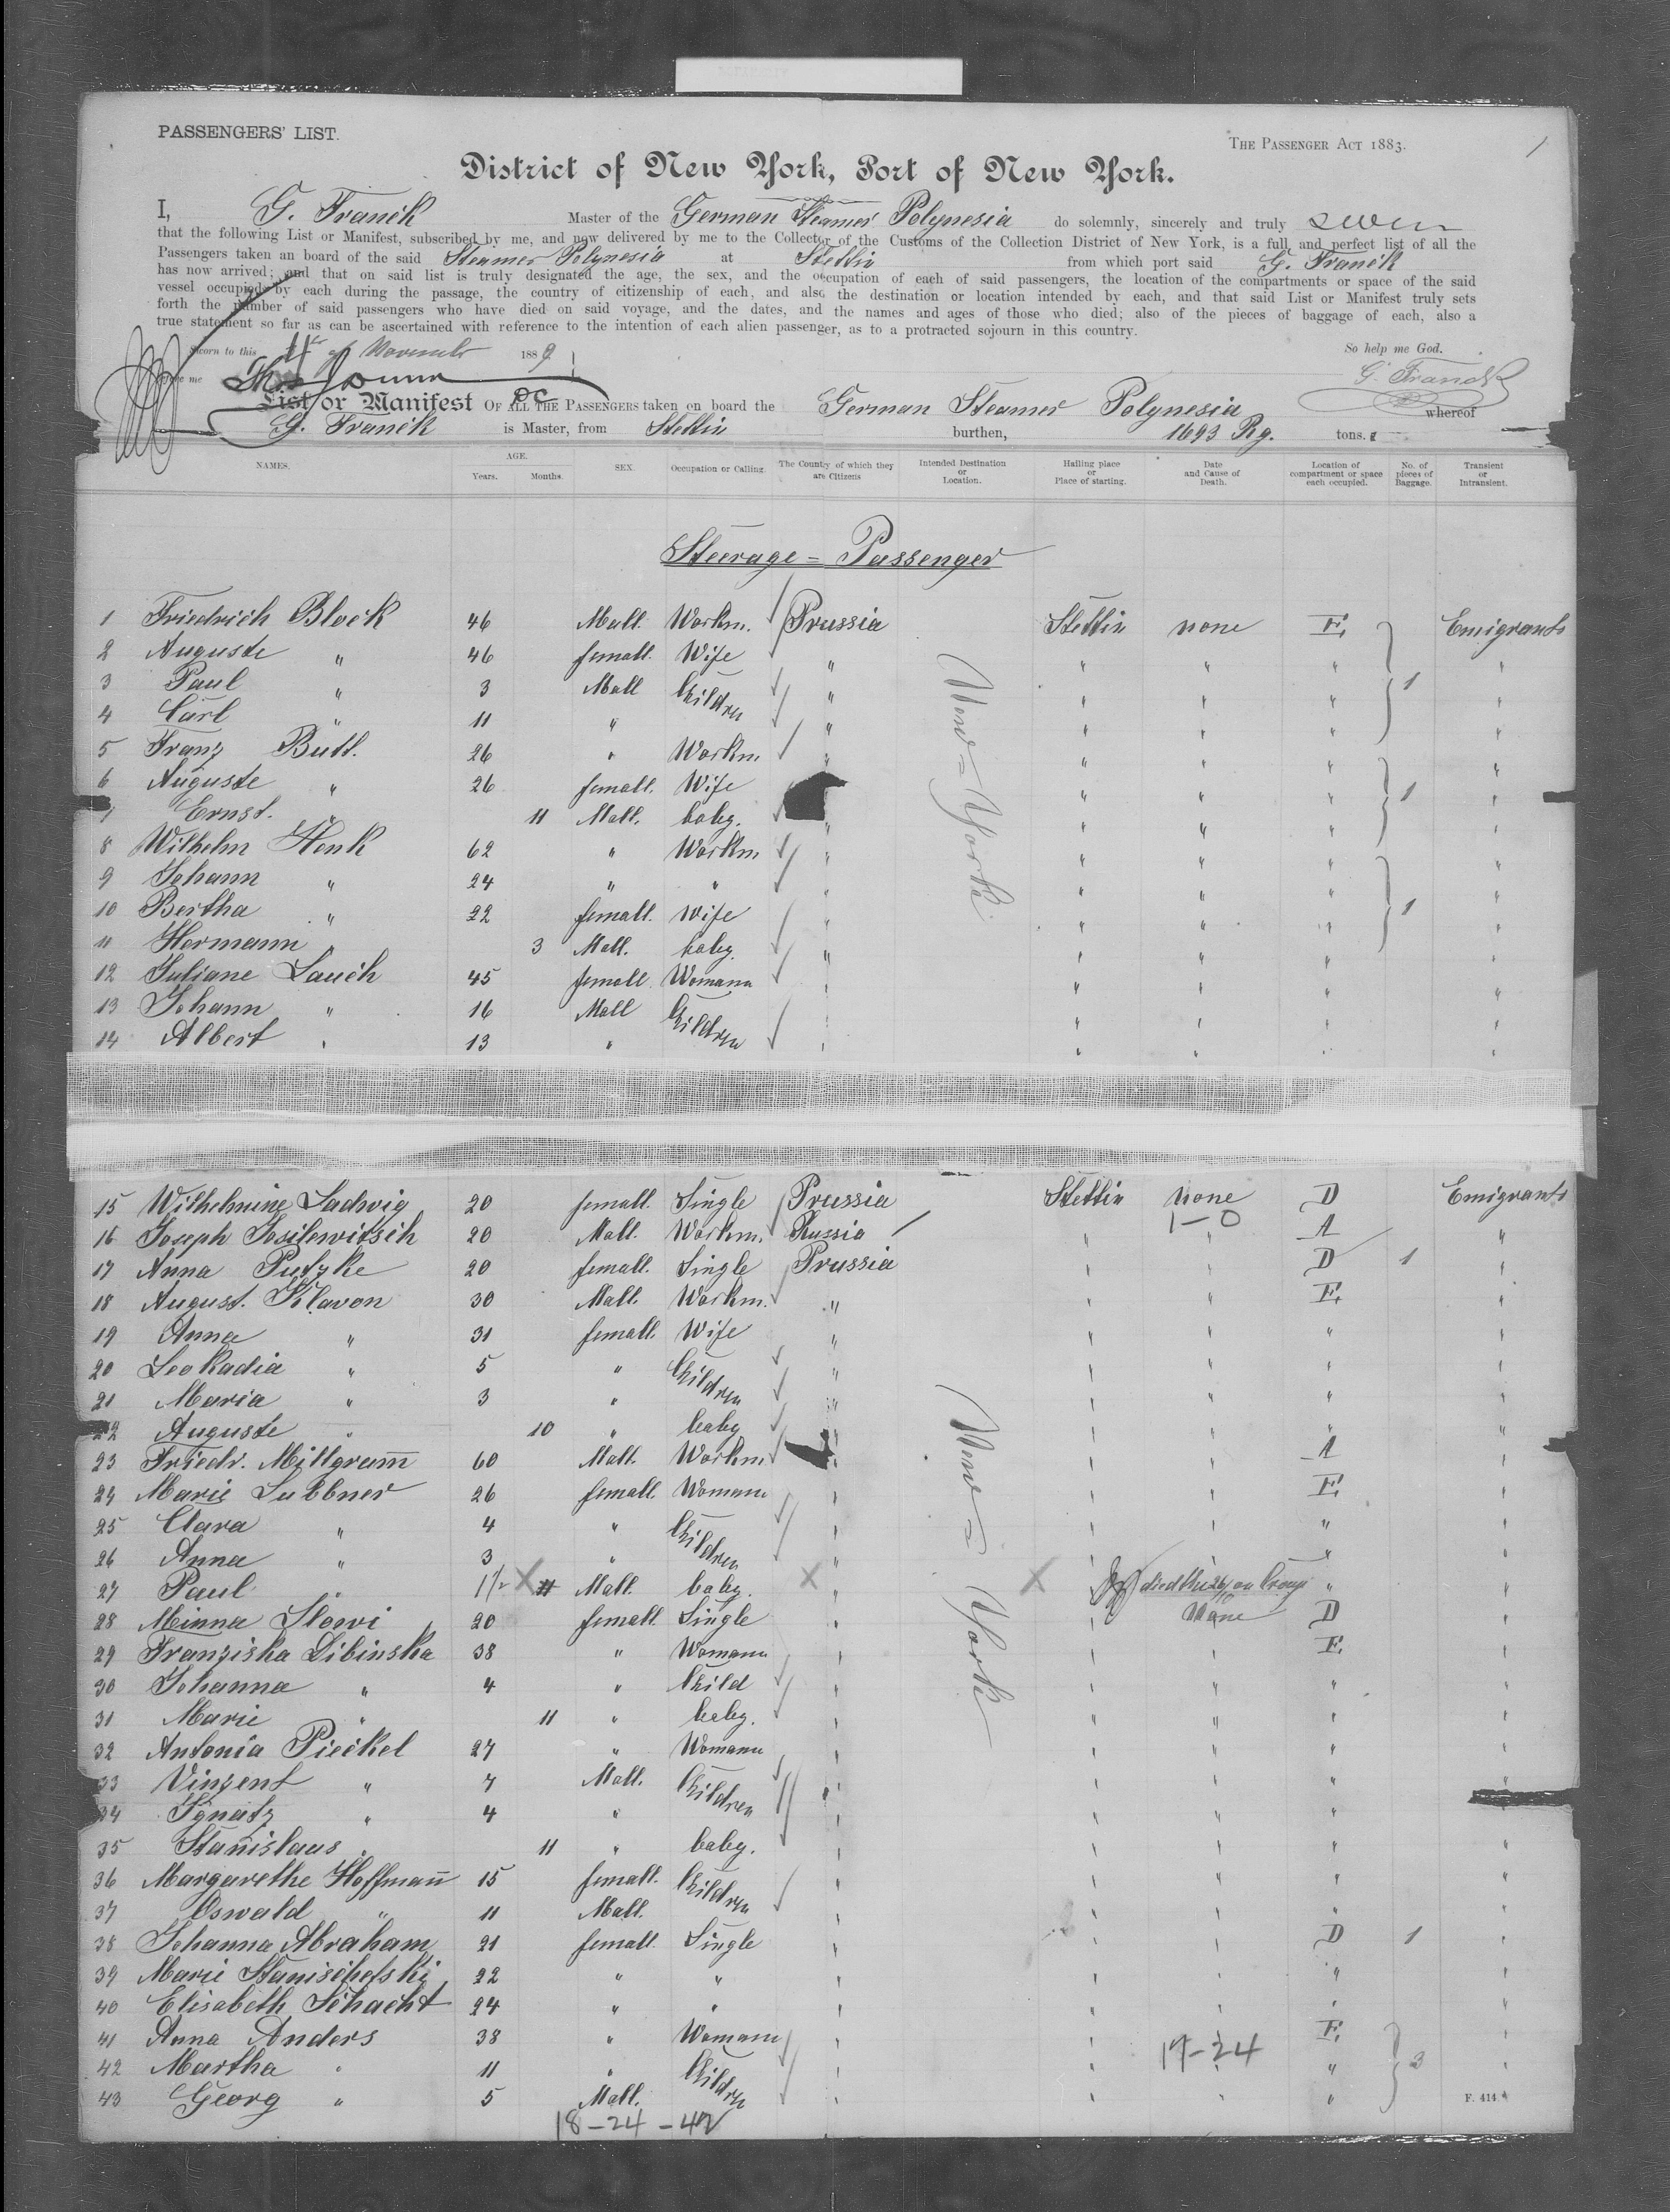 PASSENGERS' LIST.
THE PASSENGER ACT 1883.
1
District of New York, Port of New York.
I, G. Franck Master of the German Steamer Polynesia do solemnly, sincerely and truly swear
that the following List or Manifest, subscribed by me, and now delivered by me to the Collector of the Customs of the Collection District of New York, is a full and perfect list of all the
Passengers taken an board of the said Steamer Polynesia at Stettin from which port said G. Franck
has now arrived; and that on said list is truly designated the age, the sex, and the occupation of each of said passengers, the location of the compartments or space of the said
vessel occupied by each during the passage, the country of citizenship of each, and also the destination or location intended by each, and that said List or Manifest truly sets
forth the number of said passengers who have died on said voyage, and the dates, and the names and ages of those who died; also of the pieces of baggage of each, also a
true statement so far as can be ascertained with reference to the intention of each alien passenger, as to a protracted sojourn in this country.
Sworn to this 4 of November 1889
So help me God.
me
G. Franck
List or Manifest OF ALL THE PASSENGERS taken on board the German Steamer Polynesia whereof
G. Franck is Master, from Stettin burthen, 1693 Rg. tons.
NAMES. AGE. Years. Months. SEX. Occupation or Calling. The Country of which they are Citizens Intended Destination or Location. Hailing place or Place of starting. Date and Cause of Death. Location of compartment or space each occupied. No. of pieces of Baggage. Transient or Intransient.
Steerage = Passenger
1 Friedrich Block 46 Mall. Workm. Prussia Stettin none E. Emigrants
2 Auguste " 46 femall. Wife " " " " "
3 Paul " 3 Mall Children " " " " 1 "
4 Carl " 11 " " " " " "
5 Franz Butt. 26 " Workm. " " " " "
6 Auguste " 26 femall. Wife " " " 1 "
7 Ernst. " 11 Mall. baby. " " " " "
8 Wilhelm Henk 62 " Workm " " " " "
9 Johann " 24 " " " " " " "
10 Bertha " 22 femall. Wife " " " " 1 "
11 Hermann " 3 Mall. baby. " " " " "
12 Juliane Lauch 45 femall. Womann " " " "
13 Johann " 16 Mall Children " " " " "
14 Albert " 13 " " " " " "
New=York
15 Wilhelmine Ladwig 20 femall. Single Prussia Stettin none D Emigrants
1-0
16 Joseph Josilewitsch 20 Mall. Workm. Russia " " A "
17 Anna Putzke 20 femall. Single Prussia " " D 1 "
18 August. Klavon 30 Mall. Workm. " " " E. "
19 Anna " 31 femall. Wife " " " " "
20 Leokadia " 5 " Children " " " " "
21 Maria " 3 " " " " " "
22 Auguste " 10 " baby " " " " "
23 Friedr. Millgramm 60 Mall. Workm " " " A "
24 Marie Lubbner 26 femall. Womann " " " E. "
25 Clara " 4 " Children " " " " "
26 Anna " 3 " " " " " "
27 Paul " 11 Mall. baby. " " died "
28 Minna Slowi 20 femall. Single " " None D "
29 Franziska Libinska 38 " Womann " " " E. "
30 Johanna " 4 " Child " " " " "
31 Marie " 11 " baby. " " " " "
32 Antonia Pieckel 27 " Womann " " " " "
33 Vinzent " 7 Mall. Children " " " " "
34 Ignatz " 4 " " " " " "
35 Stanislaus " 11 " baby. " " " " "
36 Margarethe Hoffmann 15 femall. Children " " " " "
37 Oswald " 11 Mall. " " " " "
38 Johanna Abraham 21 femall. Single " " " D 1 "
39 Marie Stanischefski 22 " " " " " " "
40 Elisabeth Schacht 24 " " " " " " "
41 Anna Anders 38 " Womann " " " E. "
17-24
42 Martha " 11 " Children " " " 3 "
43 Georg " 5 Mall. " " " "
New=York
F. 414.
18-24-42